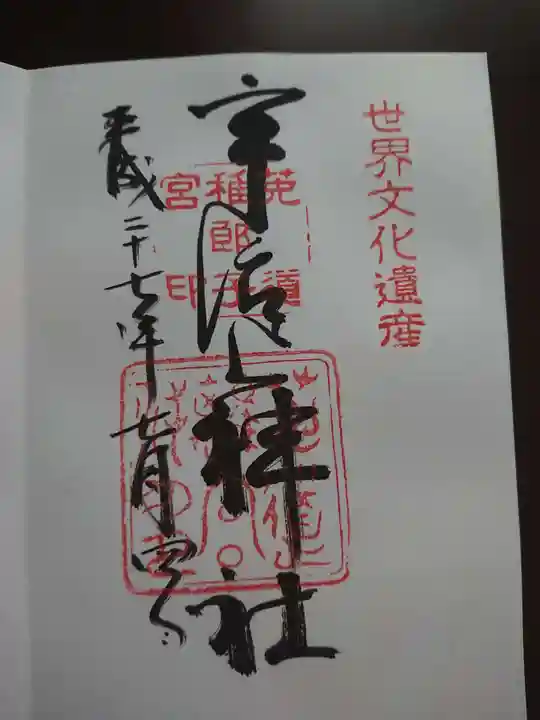 世界文化遺産
宇治上神社
菟道
稚郎子
宮印
平成二十七年七月四日